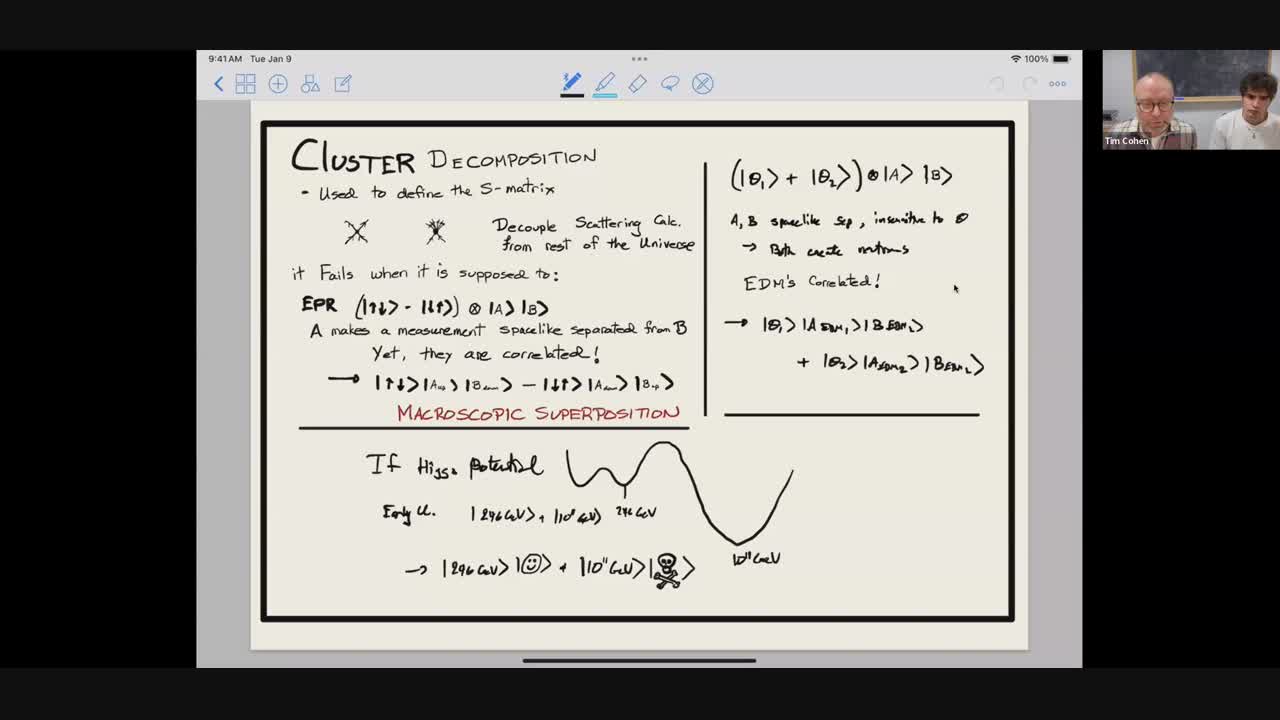 9:41 AM Tue Jan 9
100%
Tim Cohen
CLUSTER DECOMPOSITION
- Used to define the S-matrix
Decouple Scattering Calc.
from rest of the Universe
it Fails when it is supposed to:
EPR (|↑↓> - |↓↑>) ⊗ |A> |B>
A makes a measurement spacelike separated from B
Yet, they are correlated!
→ |↑↓>|A >|B > - |↓↑>|A >|B >
MACROSCOPIC SUPERPOSITION
(|θ₁> + |θ₂>) ⊗ |A> |B>
A, B spacelike sep, insensitive to θ
→ Both create neutrons
EDM's Correlated!
→ |θ₁>|A EDM₁>|B EDM₁>
+ |θ₂>|A EDM₂>|B EDM₂>
If Higgs Potential
Early U. |246 GeV> + |10¹¹ GeV> 246 GeV
10¹¹ GeV
→ |246 GeV>|☺> + |10¹¹ GeV>|☠>